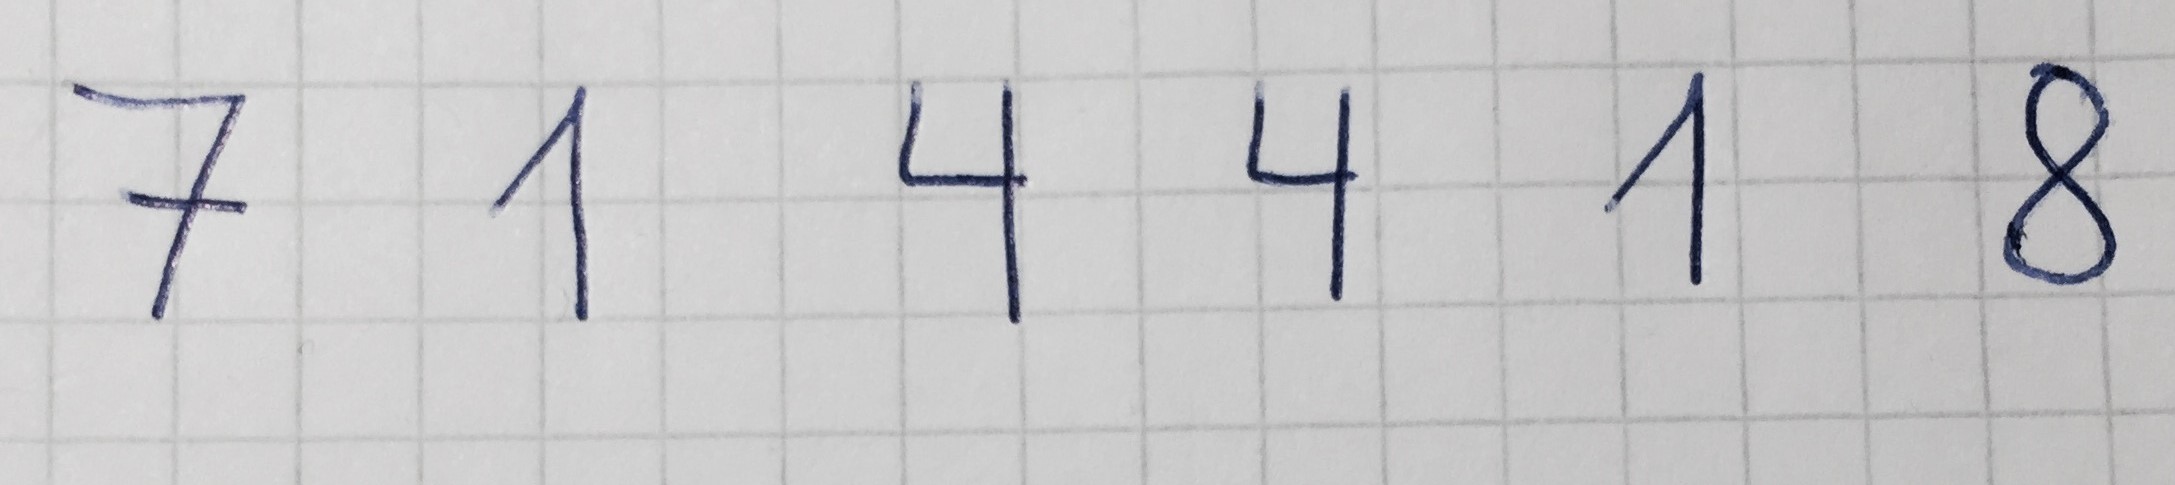 7 1 4 4 1 8